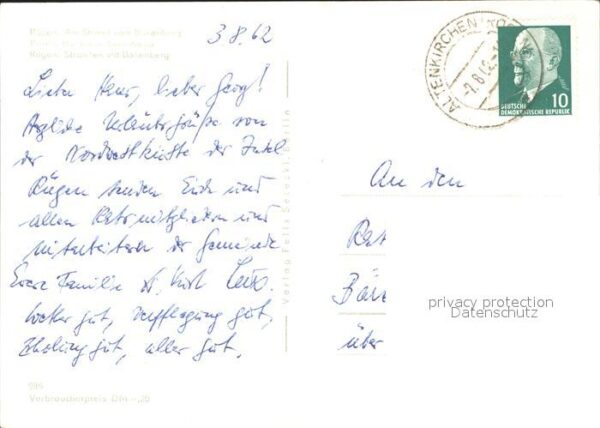 3.8.62
Rügen. Am Strand von Dranske
Rügen. Strand von
ALTENKIRCHEN (RÜGEN)
-7.8.62
DEUTSCHE
DEMOKRATISCHE REPUBLIK 10
Lieber Hans, lieber Georg!
Herzliche Urlaubsgrüße von
der Nordwestküste der Insel
Rügen senden Euch und
allen Ratsmitgliedern und
Mitarbeitern der Gemeinde
Eure Familie Kurt
Wetter gut, Verpflegung gut,
Erholung gut, alles gut.
Verlag Felix Setecki, Berlin
An den
Rat
über
privacy protection
Datenschutz
Verbraucherpreis DM -,20